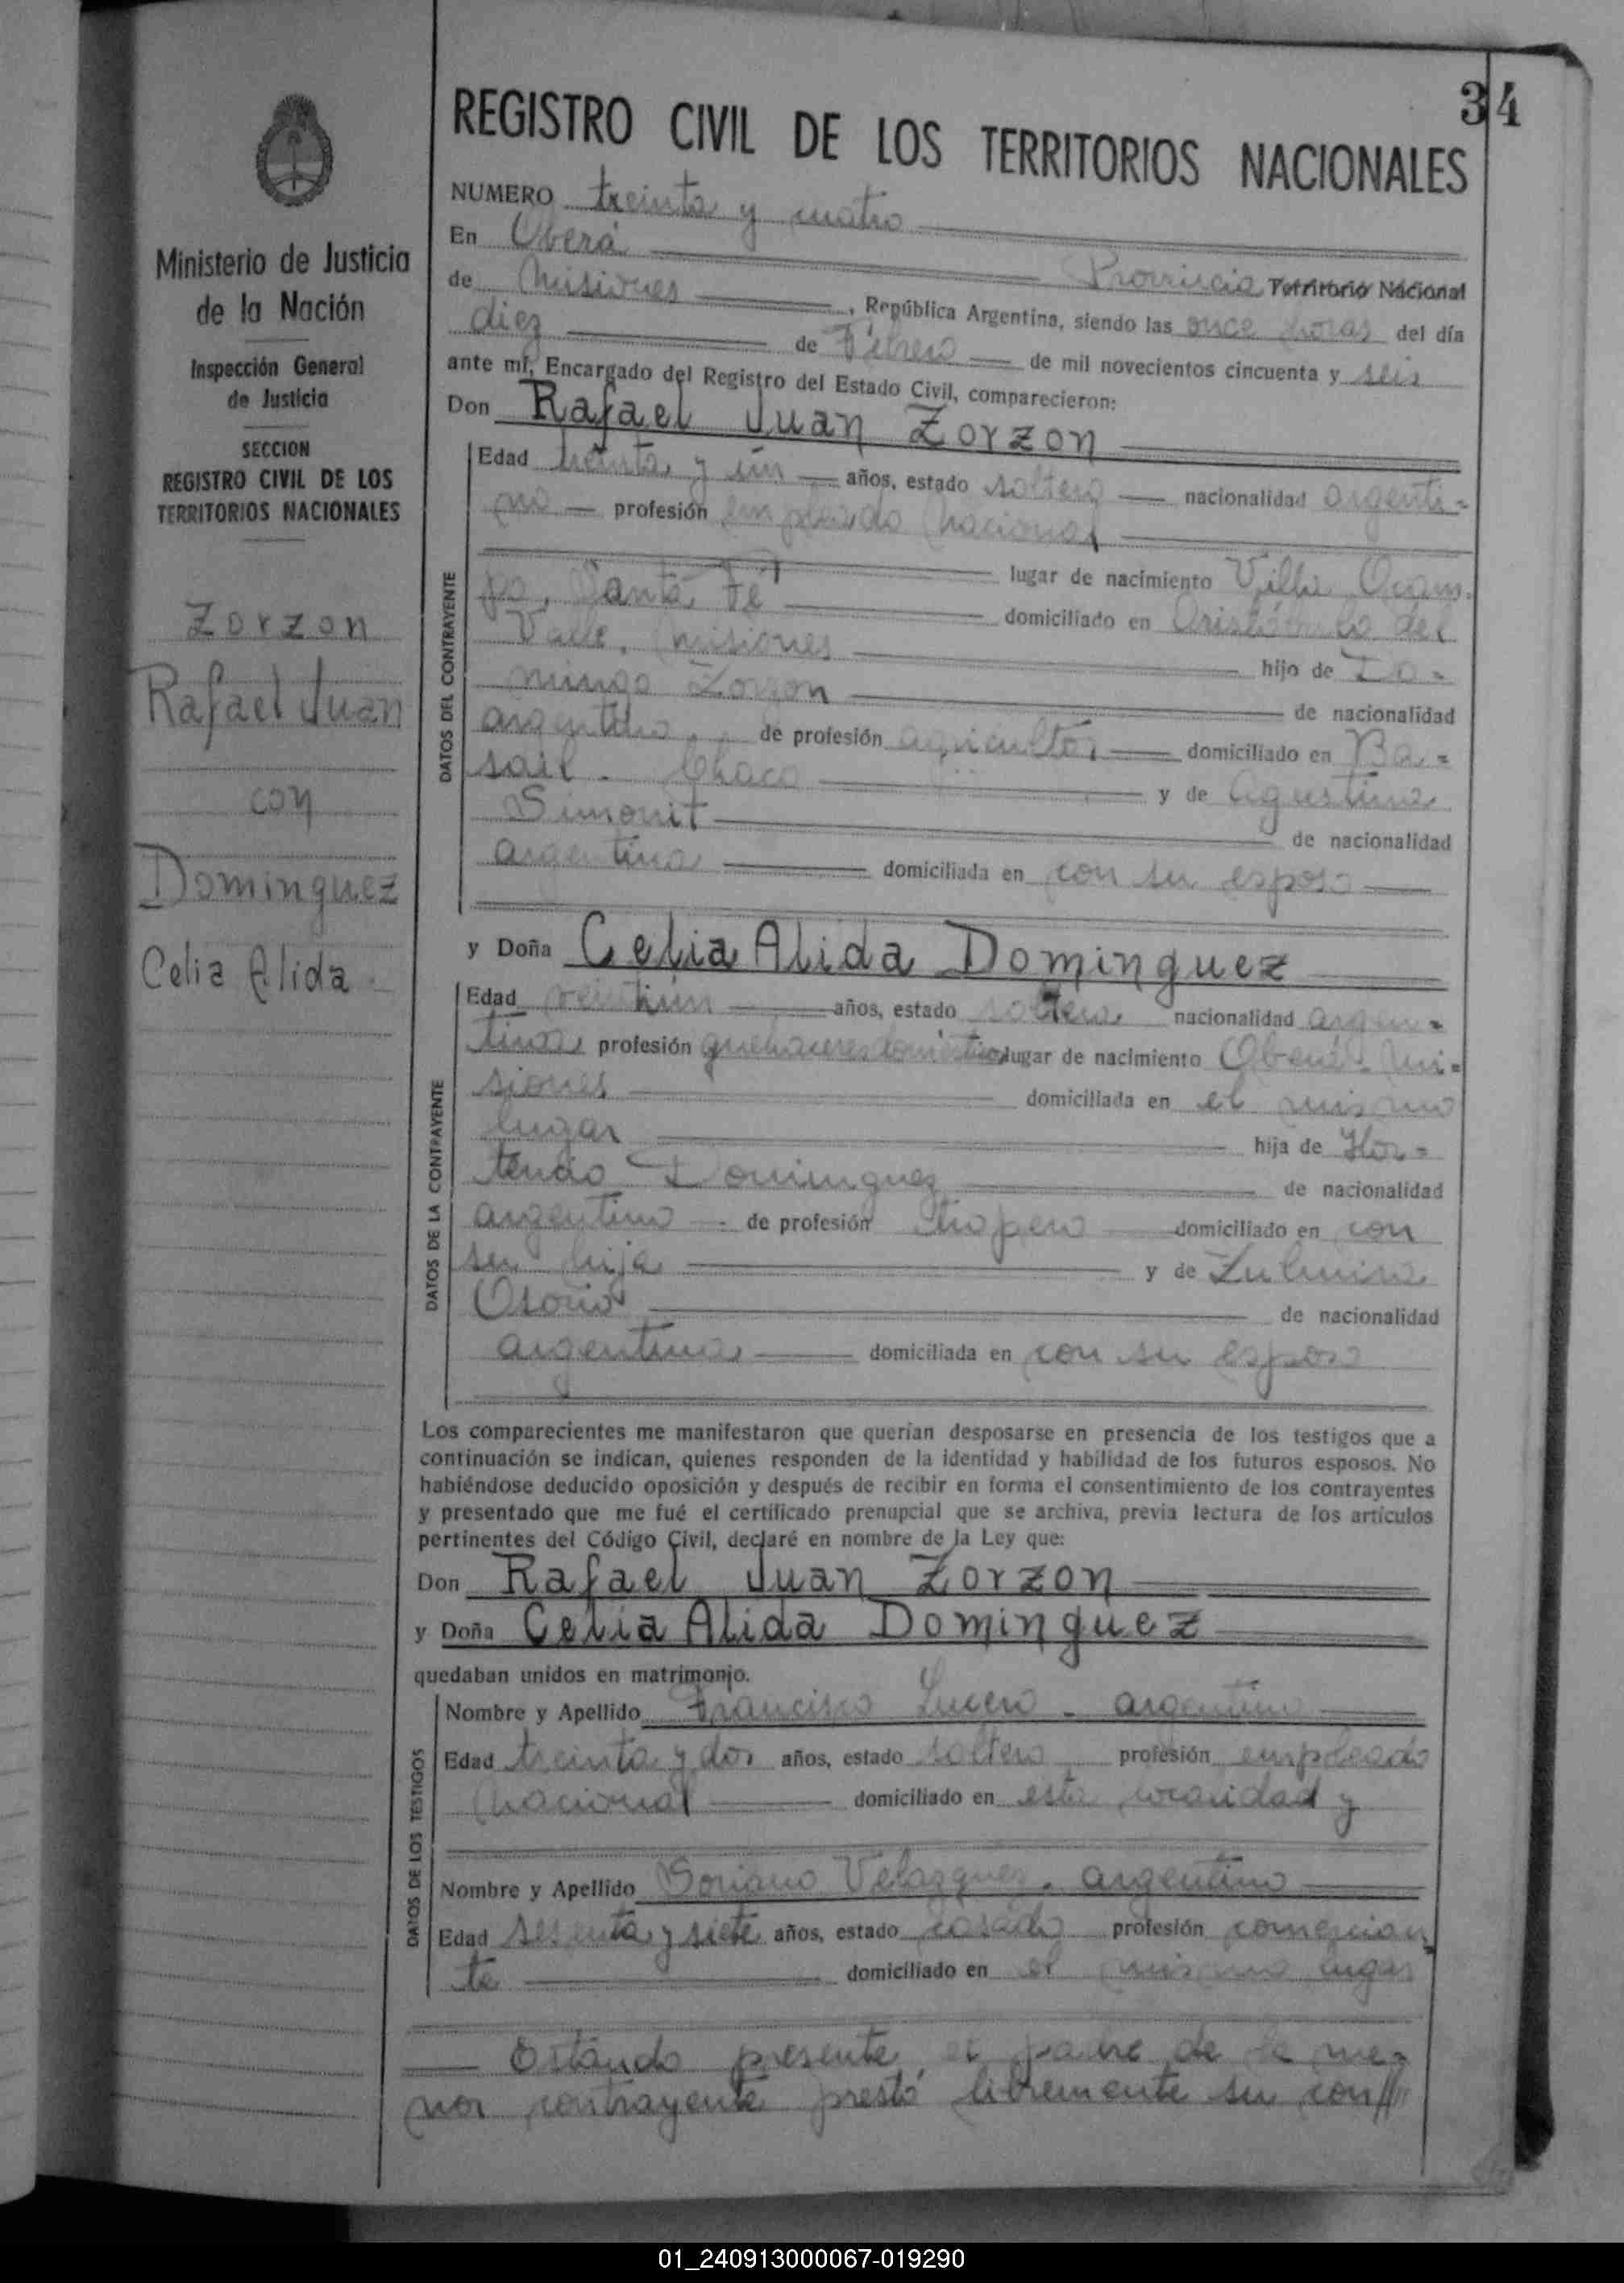 34
REGISTRO CIVIL DE LOS TERRITORIOS NACIONALES
Ministerio de Justicia
de la Nación
Inspección General
de Justicia
SECCION
REGISTRO CIVIL DE LOS
TERRITORIOS NACIONALES
Zorzon
Rafael Juan
con
Dominguez
Celia Alida
NUMERO treinta y cuatro
En Oberá Provincia Territorio Nacional
de Misiones, República Argentina, siendo las once horas del día
diez de Febrero de mil novecientos cincuenta y seis
ante mí, Encargado del Registro del Estado Civil, comparecieron:
Don Rafael Juan Zorzon
DATOS DEL CONTRAYENTE
Edad treinta y un años, estado soltero nacionalidad argenti=
no profesión empleado Nacional
lugar de nacimiento Villa Ocam-
po, Santa Fé domiciliado en Aristóbulo del
Valle, Misiones hijo de Do=
mingo Zorzon de nacionalidad
argentino de profesión agricultor domiciliado en Ba=
sail - Chaco y de Agustina
Simonit de nacionalidad
argentina domiciliada en con su esposo
y Doña Celia Alida Dominguez
DATOS DE LA CONTRAYENTE
Edad veintiún años, estado soltera nacionalidad argen=
tina profesión quehaceres domésticos lugar de nacimiento Oberá - Mi=
siones domiciliada en el mismo
lugar hija de Hor=
tencio Dominguez de nacionalidad
argentino de profesión domiciliado en con
su hija y de Zulmira
Osorio de nacionalidad
argentina domiciliada en con su esposo
Los comparecientes me manifestaron que querían desposarse en presencia de los testigos que a
continuación se indican, quienes responden de la identidad y habilidad de los futuros esposos. No
habiéndose deducido oposición y después de recibir en forma el consentimiento de los contrayentes
y presentado que me fué el certificado prenupcial que se archiva, previa lectura de los artículos
pertinentes del Código Civil, declaré en nombre de la Ley que:
Don Rafael Juan Zorzon
y Doña Celia Alida Dominguez
quedaban unidos en matrimonio.
DATOS DE LOS TESTIGOS
Nombre y Apellido Francisco Lucero - argentino
Edad treinta y dos años, estado soltero profesión empleado
Nacional domiciliado en esta localidad y
Nombre y Apellido Soriano Velazquez - argentino
Edad sesenta y siete años, estado casado profesión comercian
te domiciliado en el mismo lugar
Estando presente el padre de la me=
nor contrayente prestó libremente su con//
01_240913000067-019290